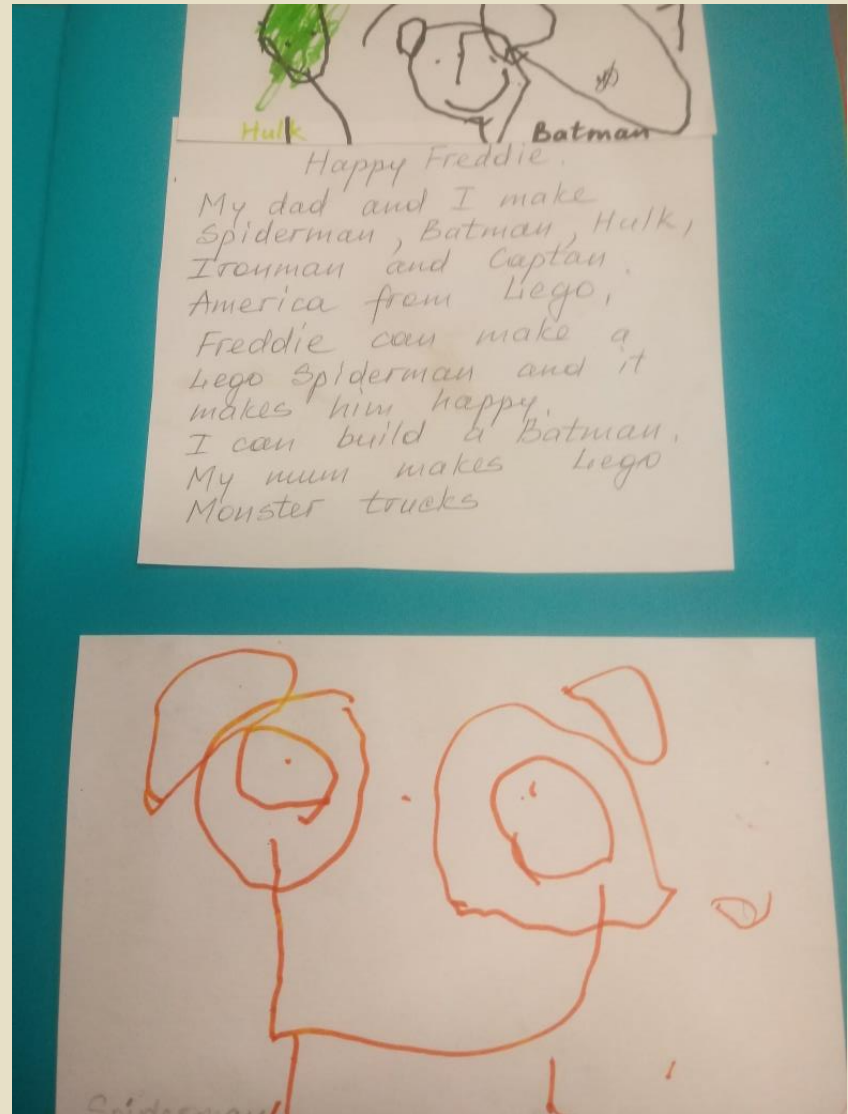 Hulk
Batman
Happy Freddie.
My dad and I make
Spiderman, Batman, Hulk,
Ironman and Captan
America from Lego.
Freddie can make a
Lego Spiderman and it
makes him happy.
I can build a Batman.
My mum makes Lego
Monster trucks
Spiderman